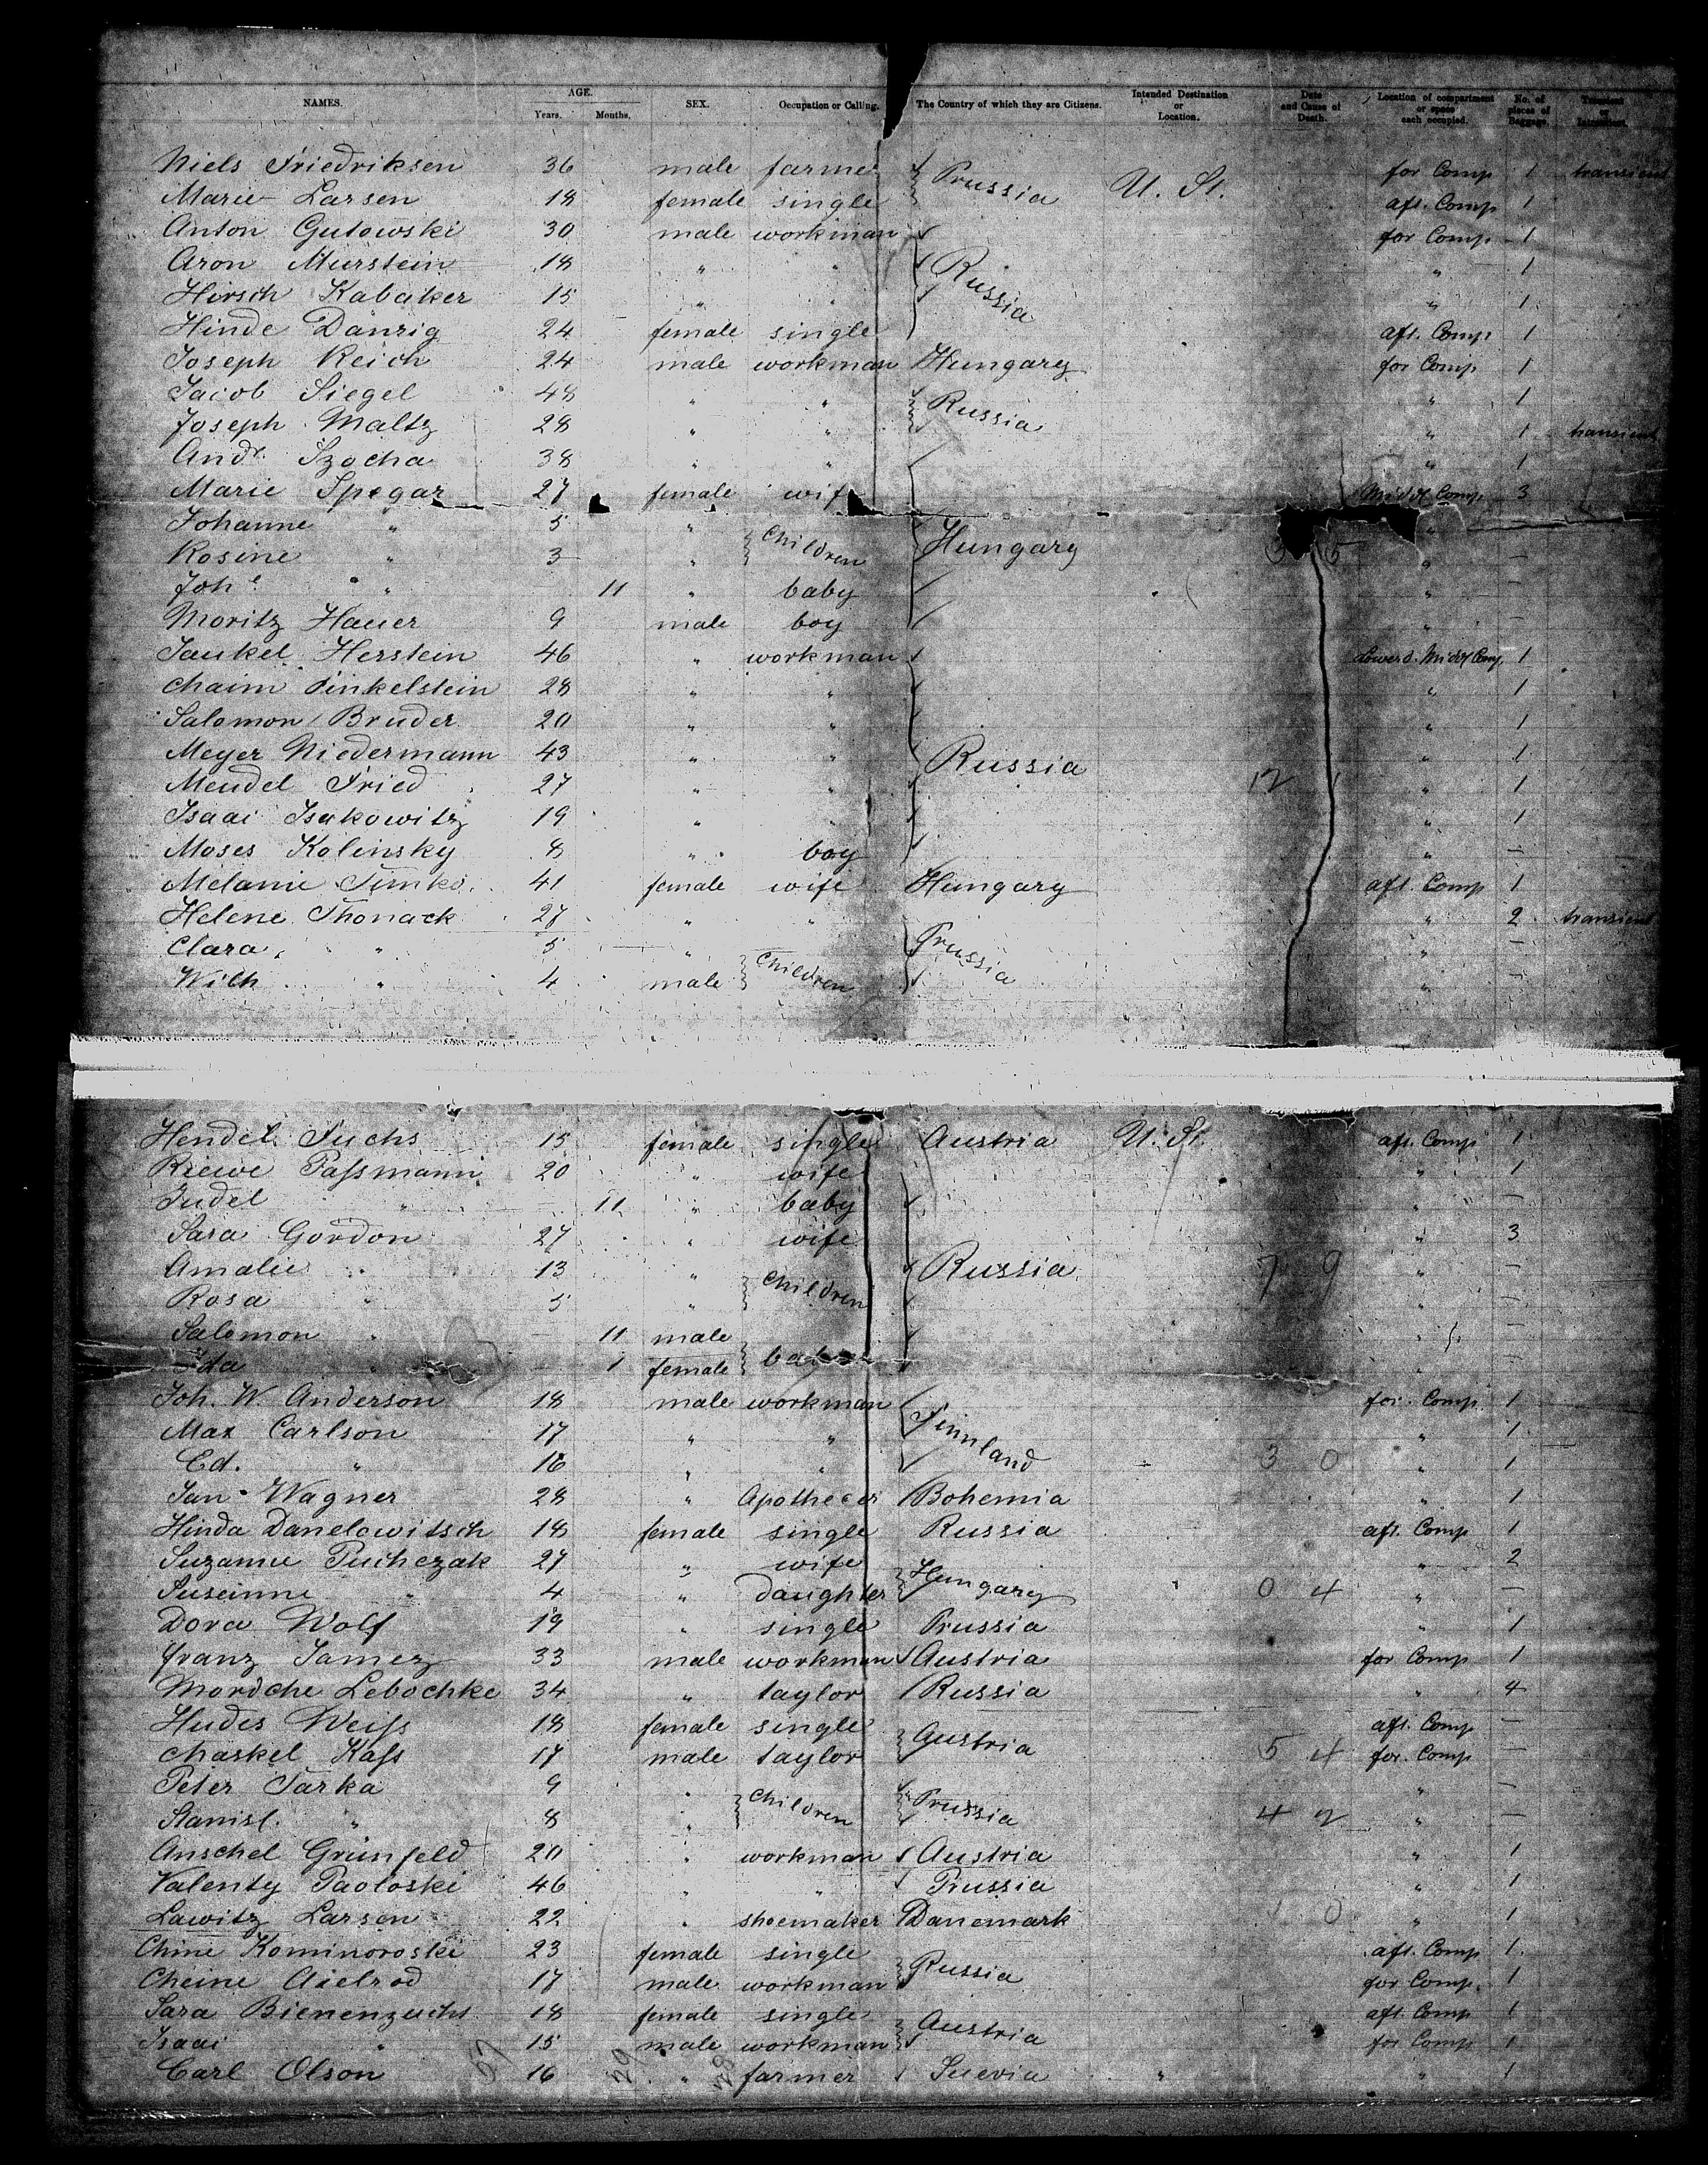 NAMES. AGE. SEX. Occupation or Calling. The Country of which they are Citizens. Intended Destination or Location. Date and Cause of Death. Location of compartment or space each occupied. No. of pieces of Baggage. Transient or
Years. Months.
Niels Friedriksen 36 male farmer Prussia U. St. for Comp 1 transient
Marie Larsen 18 female single aft. Comp 1
Anton Gutowski 30 male workman for Comp 1
Aron Murstein 18 " " Russia " 1
Hirsch Kabaker 15 " " " 1
Hinde Danzig 24 female single aft. Comp 1
Joseph Reich 24 male workman Hungary for Comp 1
Jacob Siegel 48 " " Russia " 1
Joseph Maltz 28 " " " 1 transient
Andr. Szocha 38 " " " 1
Marie Spegar 27 female wife Middl Comp 3
Johanne " 5 " Children Hungary "
Rosine " 3 " " —
Joh " 11 " baby " —
Moritz Hauer 9 male boy " —
Jankel Herstein 46 " workman Lower d. Middl Comp. 1
Chaim Finkelstein 28 " " " 1
Salomon Bruder 20 " " " 1
Meyer Niedermann 43 " " Russia " 1
Mendel Fried 27 " " 12 1 " 1
Isaai Isakowitz 19 " " " 1
Moses Kolinsky 8 " boy " —
Melanie Timko 41 female wife Hungary aft. Comp 1
Helene Thonack 27 " " Prussia " 2 transient
Clara " 5 " Children " —
Wilh " 4 male " —
Hendel Fuchs 15 female single Austria U. St. aft. Comp 1
Riewe Passmann 20 " wife " 1
Judel " 11 " baby " —
Sara Gordon 27 " wife " 3
Amalie " 13 " Children Russia 7 9 " —
Rosa " 5 " " —
Salomon " 11 male " —
Ida " 1 female baby " —
Joh. W. Anderson 18 male workman Finnland for. Comp 1
Max Carlson 17 " " " 1
Ed. " 16 " " 3 0 " 1
Jan Wagner 28 " Apothecar Bohemia " 1
Hinda Danelowitsch 18 female single Russia aft. Comp 1
Suzanne Puchczak 27 " wife Hungary " 2
Suseinne " 4 " daughter 0 4 " —
Dora Wolf 19 " single Prussia " 1
Franz Jamez 33 male workman Austria for Comp 1
Mordche Lebochke 34 " taylor Russia " 4
Hudes Weiss 18 female single Austria aft. Comp —
Chaskel Kass 17 male taylor 5 4 for. Comp —
Peter Tarka 9 " Children Prussia " —
Stanisl. " 8 " 4 2 " —
Anschel Grünfeld 20 " workman Austria " 1
Valenty Paoloski 46 " " Prussia " 1
Lawitz Larsen 22 " shoemaker Danemark 1 0 " 1
Chine Kominoroski 23 female single Russia aft. Comp 1
Cheine Axelrod 17 male workman for Comp. 1
Sara Bienenzucht 18 female single Austria aft. Comp 1
Isaai " 15 male workman for Comp 1
Carl Olson 16 " farmer Suevia " " 1